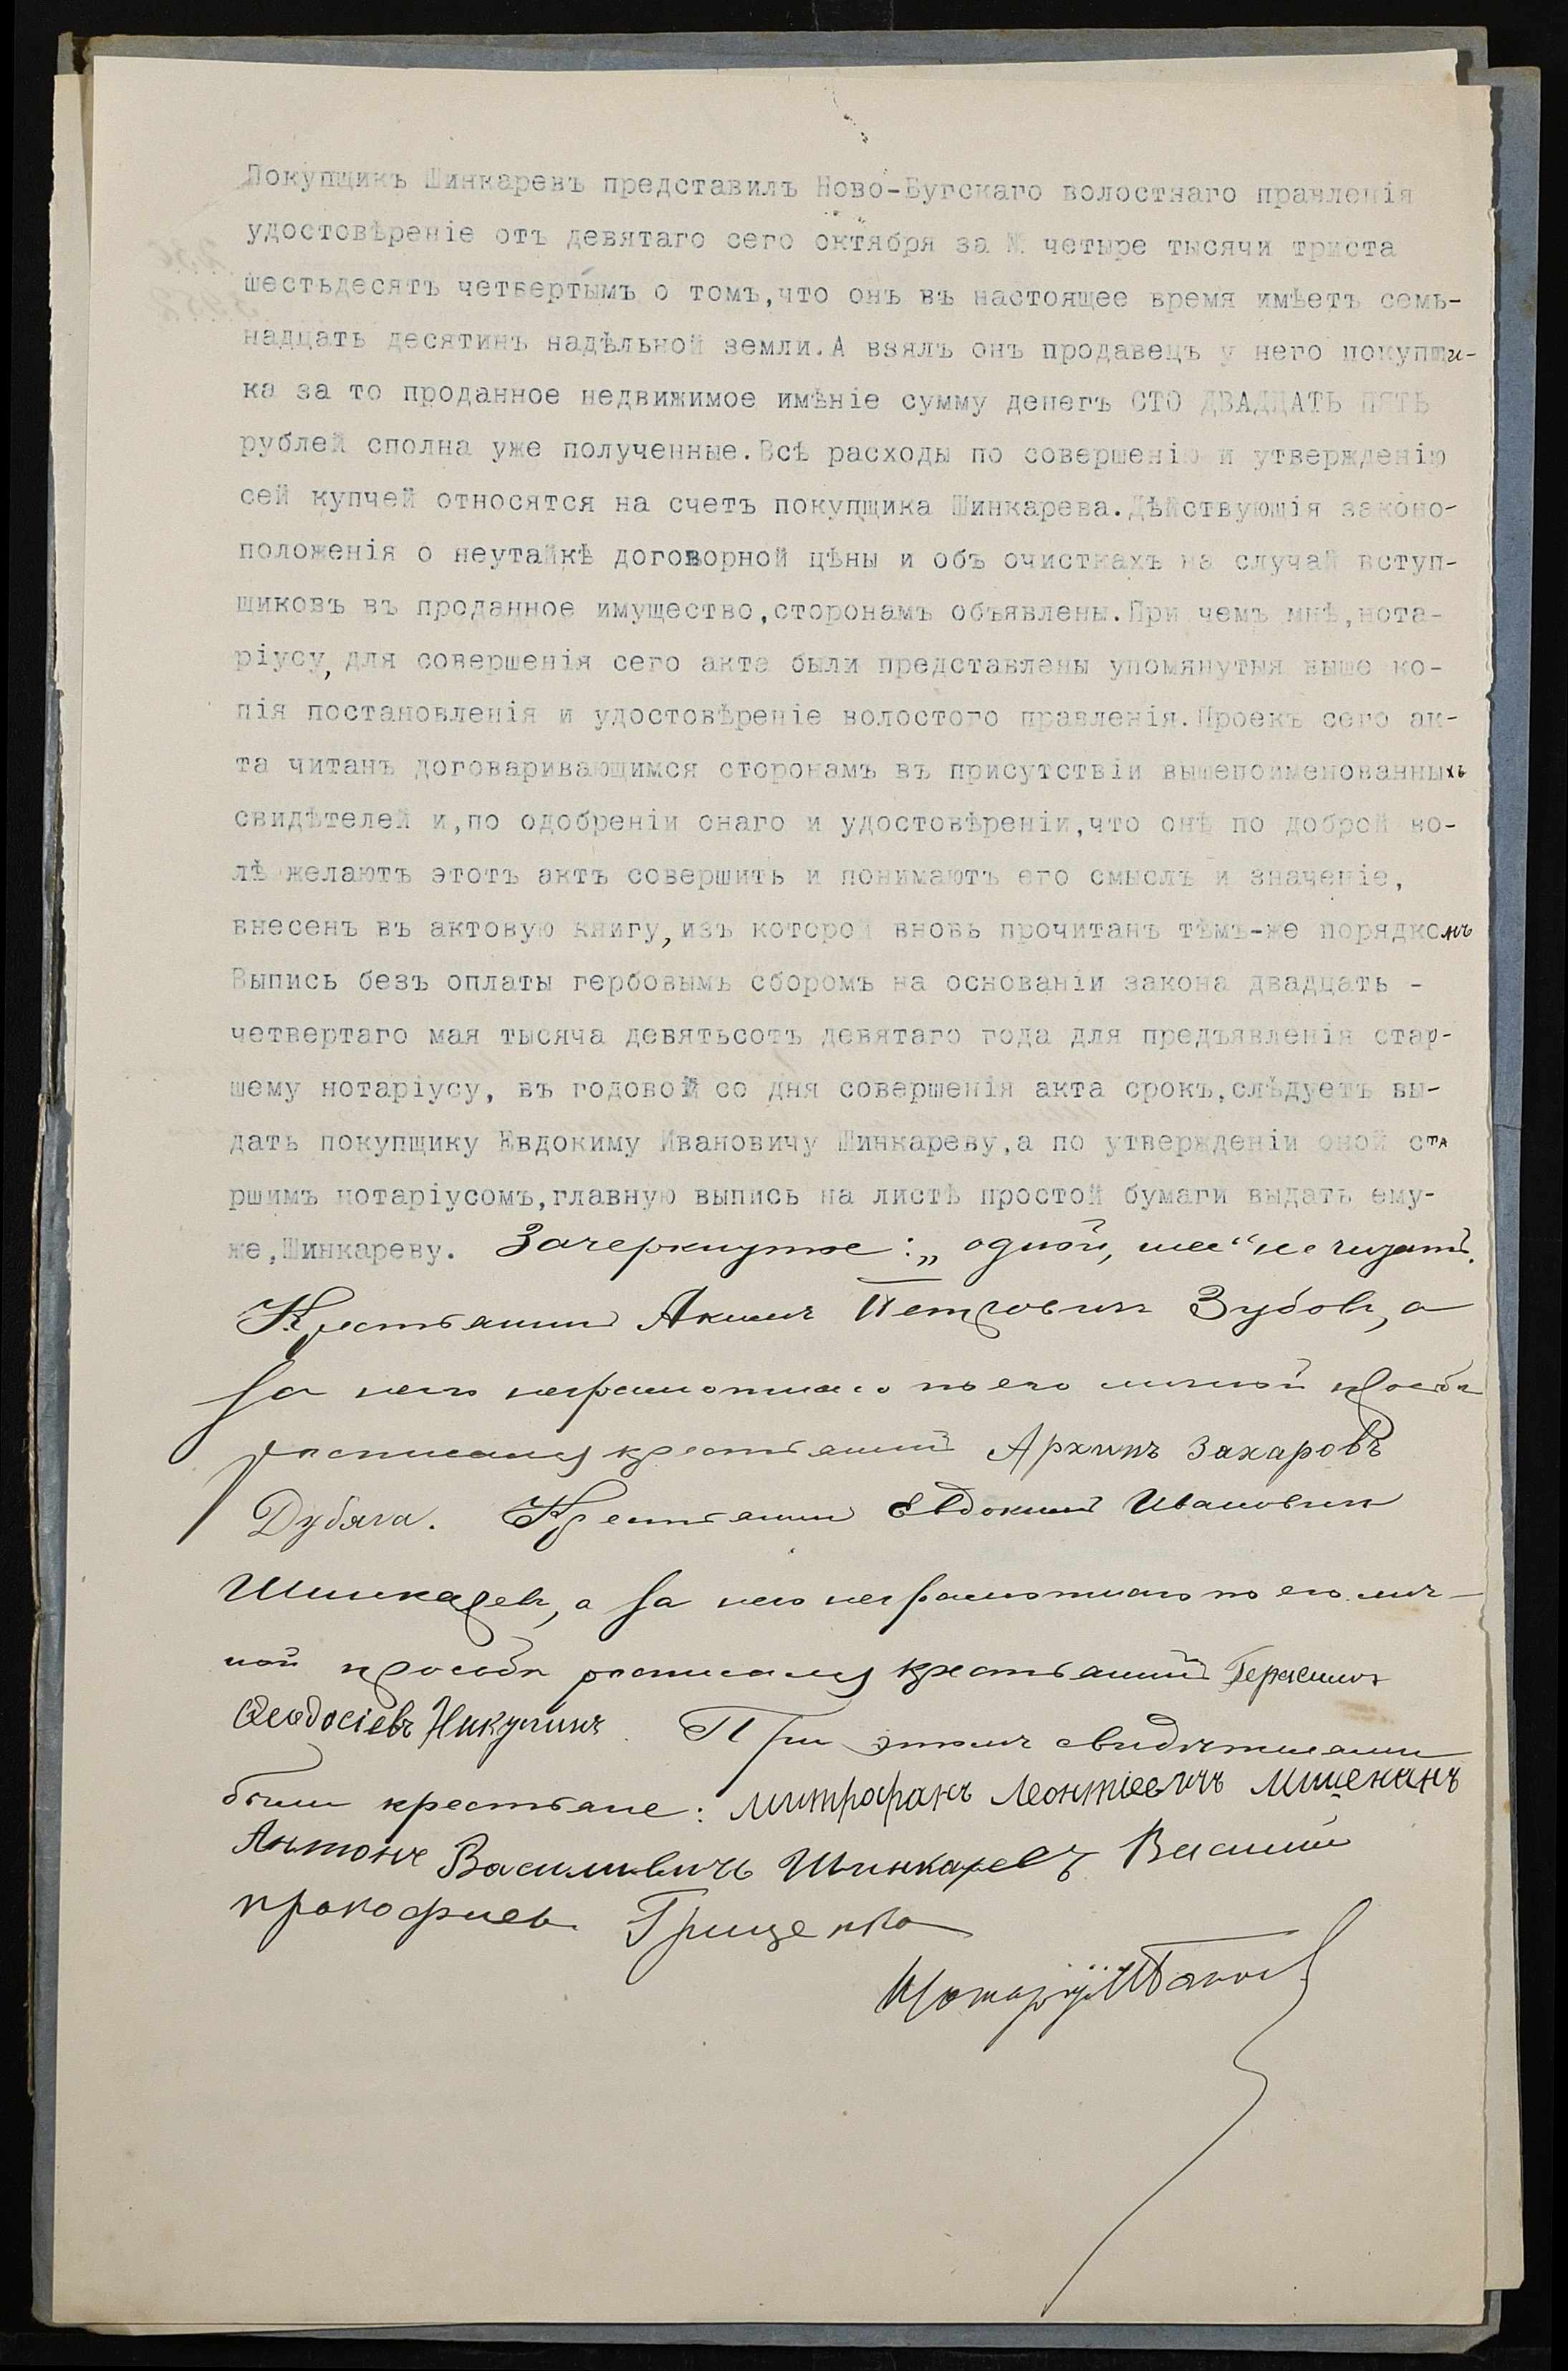 Покупщикъ Шинкаревъ представилъ Ново-Бугскаго волостнаго правленія
удостовѣреніе отъ девятаго сего октября за № четыре тысячи триста
шестьдесятъ четвертымъ о томъ,что онъ въ настоящее время имѣетъ семь-
надцать десятинъ надѣльной земли.А взялъ онъ продавецъ у него покупщи-
ка за то проданное недвижимое имѣніе сумму денегъ СТО ДВАДЦАТЬ ПЯТЬ
рублей сполна уже полученные.Всѣ расходы по совершенію и утвержденію
сей купчей относятся на счетъ покупщика Шинкарева.Дѣйствующія законо-
положенія о неутайкѣ договорной цѣны и объ очисткахъ на случай вступ-
щиковъ въ проданное имущество,сторонамъ объявлены.При чемъ мнѣ,нота-
ріусу, для совершенія сего акта были представлены упомянутыя выше ко-
пія постановленія и удостовѣреніе волостого правленія.Проекъ сего ак-
та читанъ договаривающимся сторонамъ въ присутствіи вышепоименованныхъ
свидѣтелей и,по одобреніи онаго и удостовѣреніи,что онѣ по доброй во-
лѣ желаютъ этотъ актъ совершить и понимаютъ его смыслъ и значеніе,
внесенъ въ актовую книгу,изъ которой вновь прочитанъ тѣмъ-же порядкомъ
Выпись безъ оплаты гербовымъ сборомъ на основаніи закона двадцать -
четвертаго мая тысяча девятьсотъ девятаго года для предъявленія стар-
шему нотаріусу, въ годовой со дня совершенія акта срокъ,слѣдуетъ вы-
дать покупщику Евдокиму Ивановичу Шинкареву,а по утвержденіи оной ста
ршимъ нотаріусомъ,главную выпись на листѣ простой бумаги выдать ему-
же,Шинкареву. Зачеркнутое: „одной, шее“ не читать.
Крестьянинъ Акимъ Петровичъ Зубовъ, а
за него неграмотнаго по его личной просьбѣ
росписался крестьянинъ Архипъ Захаровъ
Дубяга. Крестьянинъ Евдокимъ Ивановичъ
Шинкаревъ, а за него неграмотнаго по его лич-
ной просьбѣ росписался крестьянинъ Герасимъ
Феодосіевъ Никулинъ. При этомъ свидѣтелями
были крестьяне: Митрофанъ Леонтіевичъ
Антонъ Василивичъ Шинкаревъ Василий
прокофиев Грищенко
Нотаріусъ